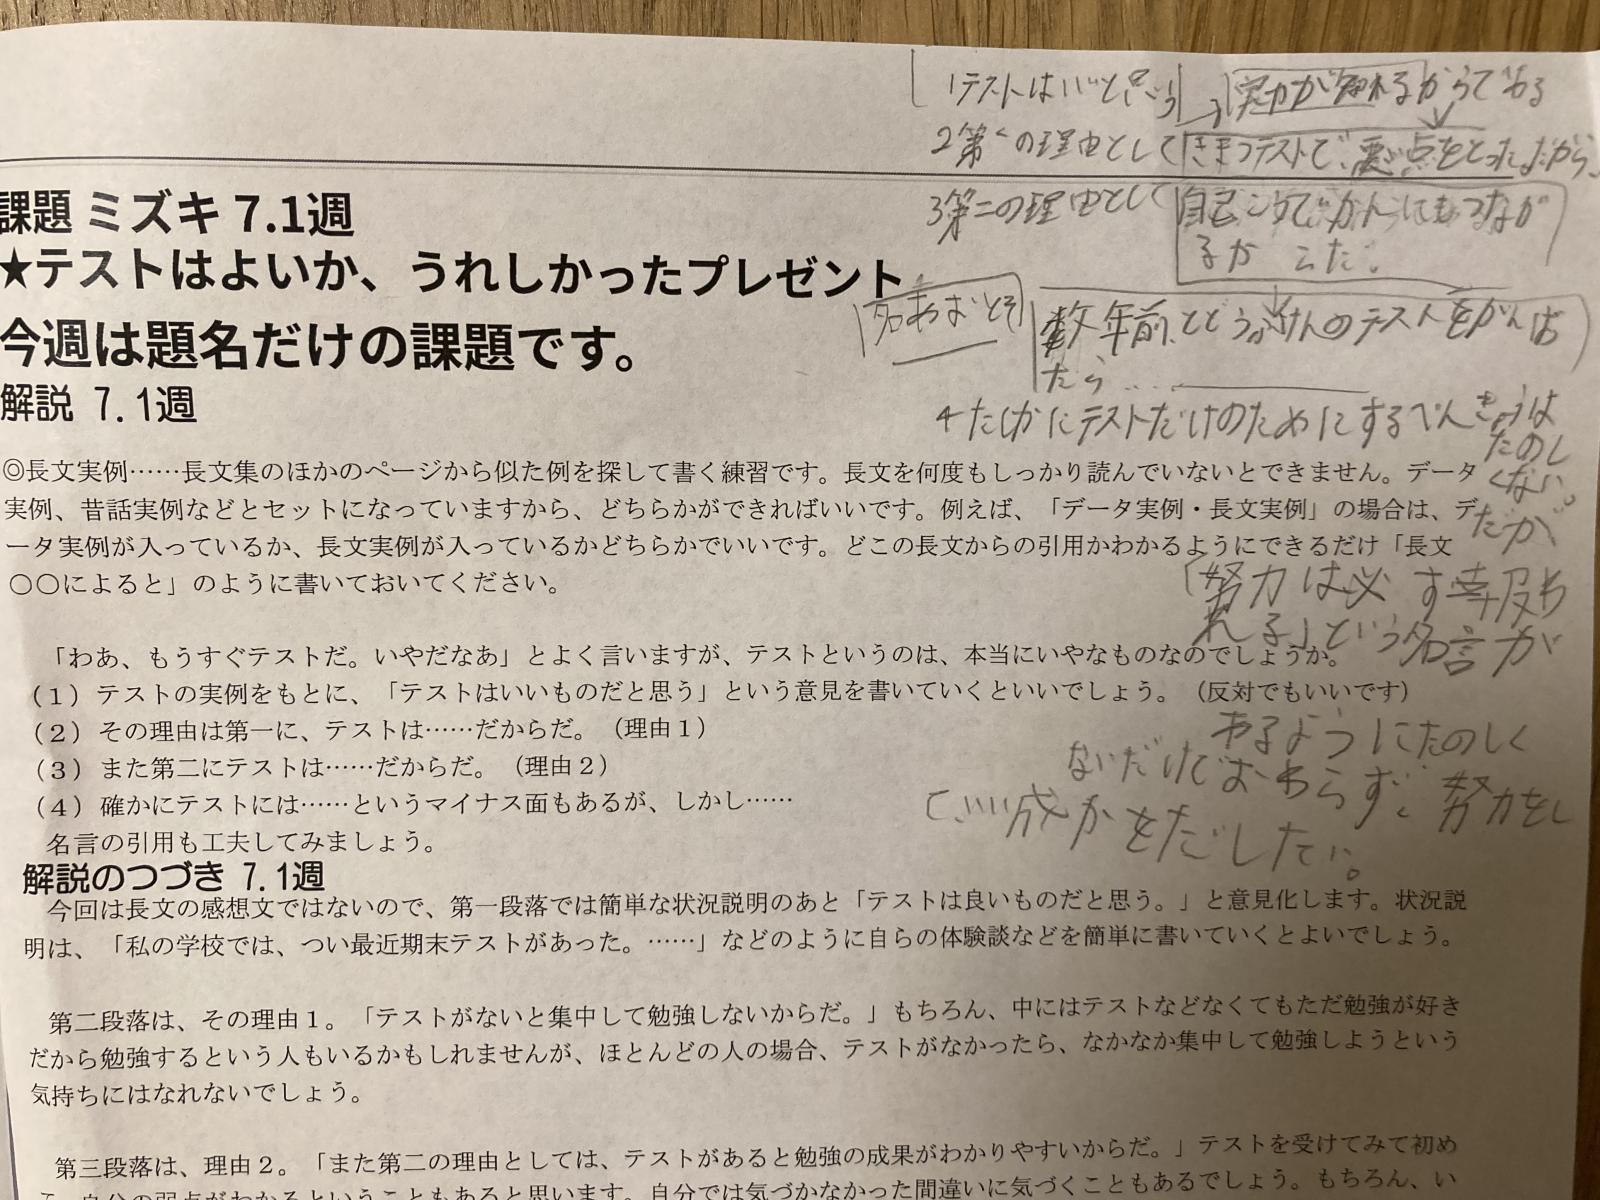 1テストはいいと思う 実力が知れるからである
2第一の理由として きまつテストで、悪い点をとった。だから、
3第二の理由として 自己こうていかんにもつながるからだ。
名おおとそ
数年前、とどうふけんのテストをがんばたら……
4たしかにテストだけのためにするべんきょうは
たのし
くない。
だが
「努力は必す幸報わ
れる」という名言が
あるようにたのしく
ないだけでおわらず、努力をし
ていい成かをだしたい。
課題 ミズキ 7.1週
★テストはよいか、うれしかったプレゼント
今週は題名だけの課題です。
解説 7.1週
◎長文実例……長文集のほかのページから似た例を探して書く練習です。長文を何度もしっかり読んでいないとできません。データ
実例、昔話実例などとセットになっていますから、どちらかができればいいです。例えば、「データ実例・長文実例」の場合は、デ
ータ実例が入っているか、長文実例が入っているかどちらかでいいです。どこの長文からの引用かわかるようにできるだけ「長文
〇〇によると」のように書いておいてください。
「わあ、もうすぐテストだ。いやだなあ」とよく言いますが、テストというのは、本当にいやなものなのでしょうか。
(1) テストの実例をもとに、「テストはいいものだと思う」という意見を書いていくといいでしょう。(反対でもいいです)
(2) その理由は第一に、テストは……だからだ。(理由1)
(3) また第二にテストは……だからだ。(理由2)
(4) 確かにテストには……というマイナス面もあるが、しかし……
名言の引用も工夫してみましょう。
解説のつづき 7.1週
今回は長文の感想文ではないので、第一段落では簡単な状況説明のあと「テストは良いものだと思う。」と意見化します。状況説
明は、「私の学校では、つい最近期末テストがあった。……」などのように自らの体験談などを簡単に書いていくとよいでしょう。
第二段落は、その理由1。「テストがないと集中して勉強しないからだ。」もちろん、中にはテストなどなくてもただ勉強が好き
だから勉強するという人もいるかもしれませんが、ほとんどの人の場合、テストがなかったら、なかなか集中して勉強しようという
気持ちにはなれないでしょう。
第三段落は、理由2。「また第二の理由としては、テストがあると勉強の成果がわかりやすいからだ。」テストを受けてみて初め
て、自分の弱点がわかるということもあると思います。自分では気づかなかった間違いに気づくこともあるでしょう。もちろん、い